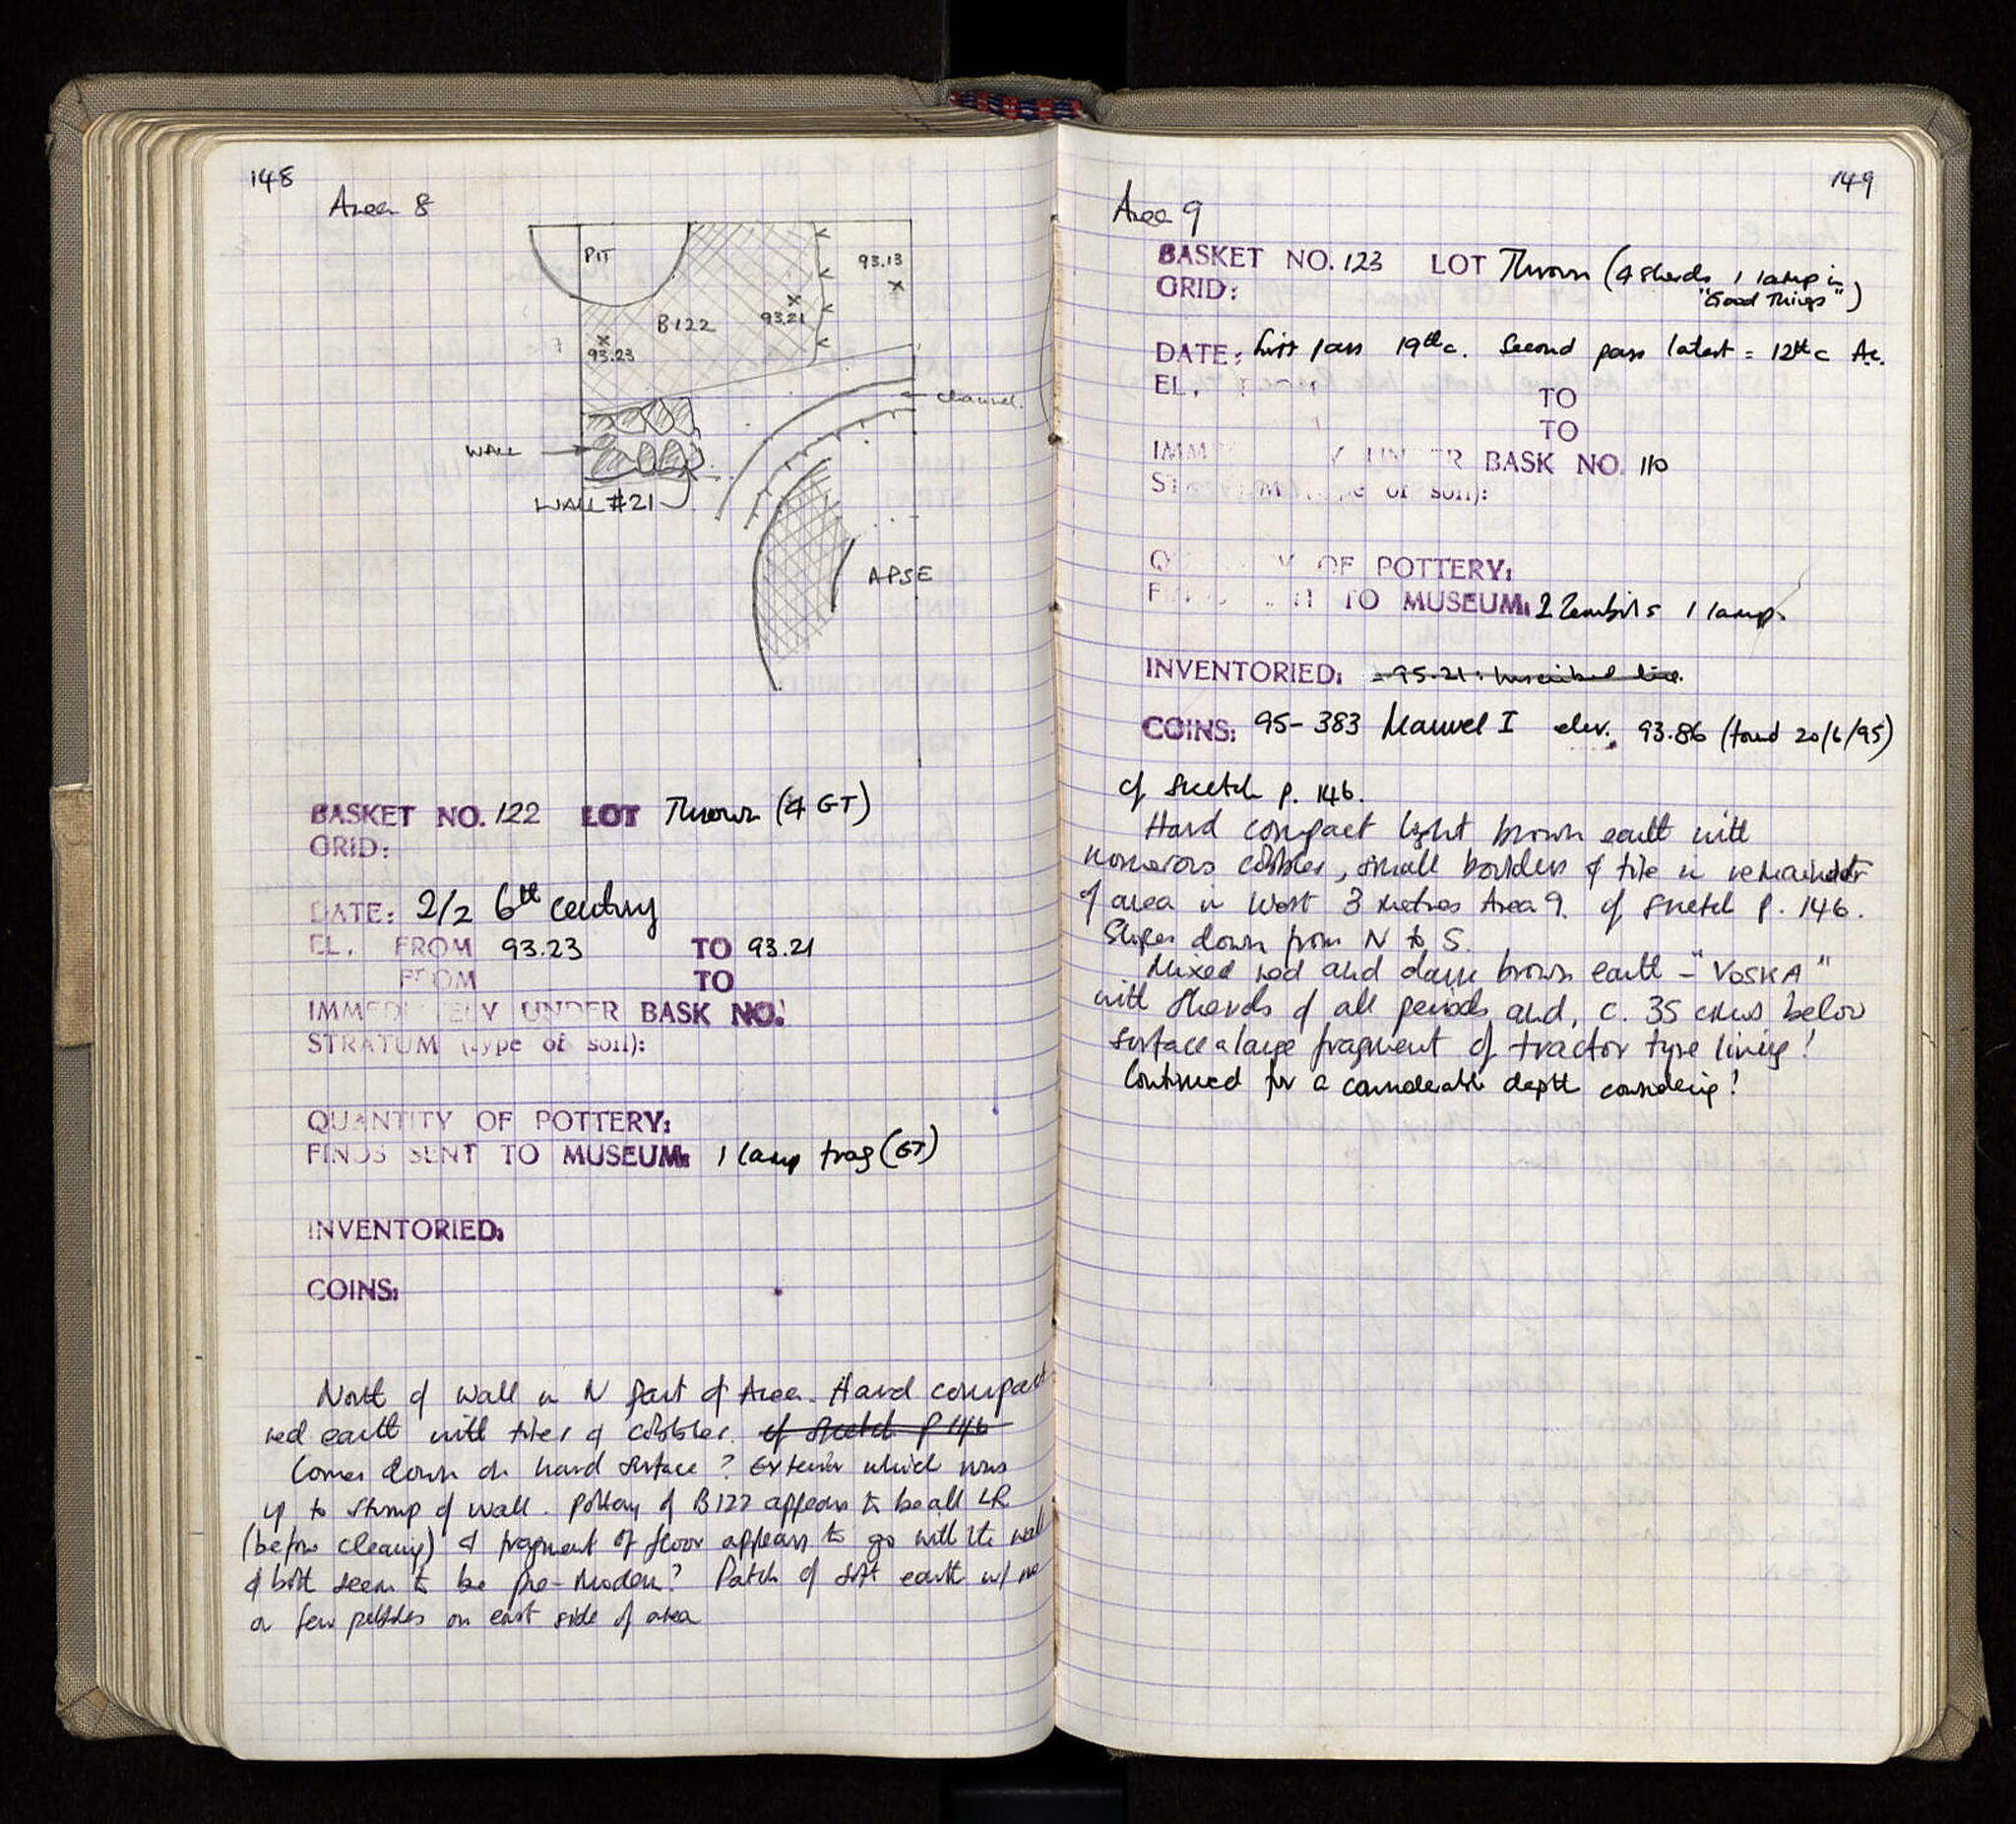 148
Area 8
PIT
93.13
93.21
B122
93.23
channel.
WALL
WALL #21
APSE
BASKET NO. 122 LOT Thrown (4 GT)
GRID:
DATE: 2/2 6th century
EL. FROM 93.23 TO 93.21
FROM TO
IMMEDIATELY UNDER BASK NO.
STRATUM (type of soil):
QUANTITY OF POTTERY:
FINDS SENT TO MUSEUM: 1 lamp frag (GT)
INVENTORIED:
COINS:
North of wall in N part of Area. Hard compact
red earth with tiles & cobbles. cf sketch p 146
Comes down on hard surface? Exterior which runs
up to stump of wall. Pottery of B122 appears to be all LR
(before cleaning) & fragment of floor appears to go with the wall
& both seem to be pre-modern? Patch of soft earth w/ no
or few pebbles on east side of area
149
Area 9
BASKET NO. 123 LOT Thrown (4 sherds, 1 lamp in
GRID: "Good Things")
DATE: first pass 19th c. Second pass latest = 12th c
EL. FROM TO
TO
IMMEDIATELY UNDER BASK NO. 110
STRATUM (type of soil):
QUANTITY OF POTTERY:
FINDS SENT TO MUSEUM: 2 Zembils 1 lamp.
INVENTORIED: 95-21:
COINS: 95-383 Manuel I elev. 93.86 (found 20/6/95)
cf sketch p. 146.
Hard compact light brown earth with
numerous cobbles, small boulders & tile in remainder
of area in West 3 metres Area 9. cf sketch p. 146.
Slopes down from N to S.
Mixed red and dark brown earth - "VOSKA"
with sherds of all periods and, c. 35 cms below
surface a large fragment of tractor tyre lining!
Continued for a considerable depth considering!